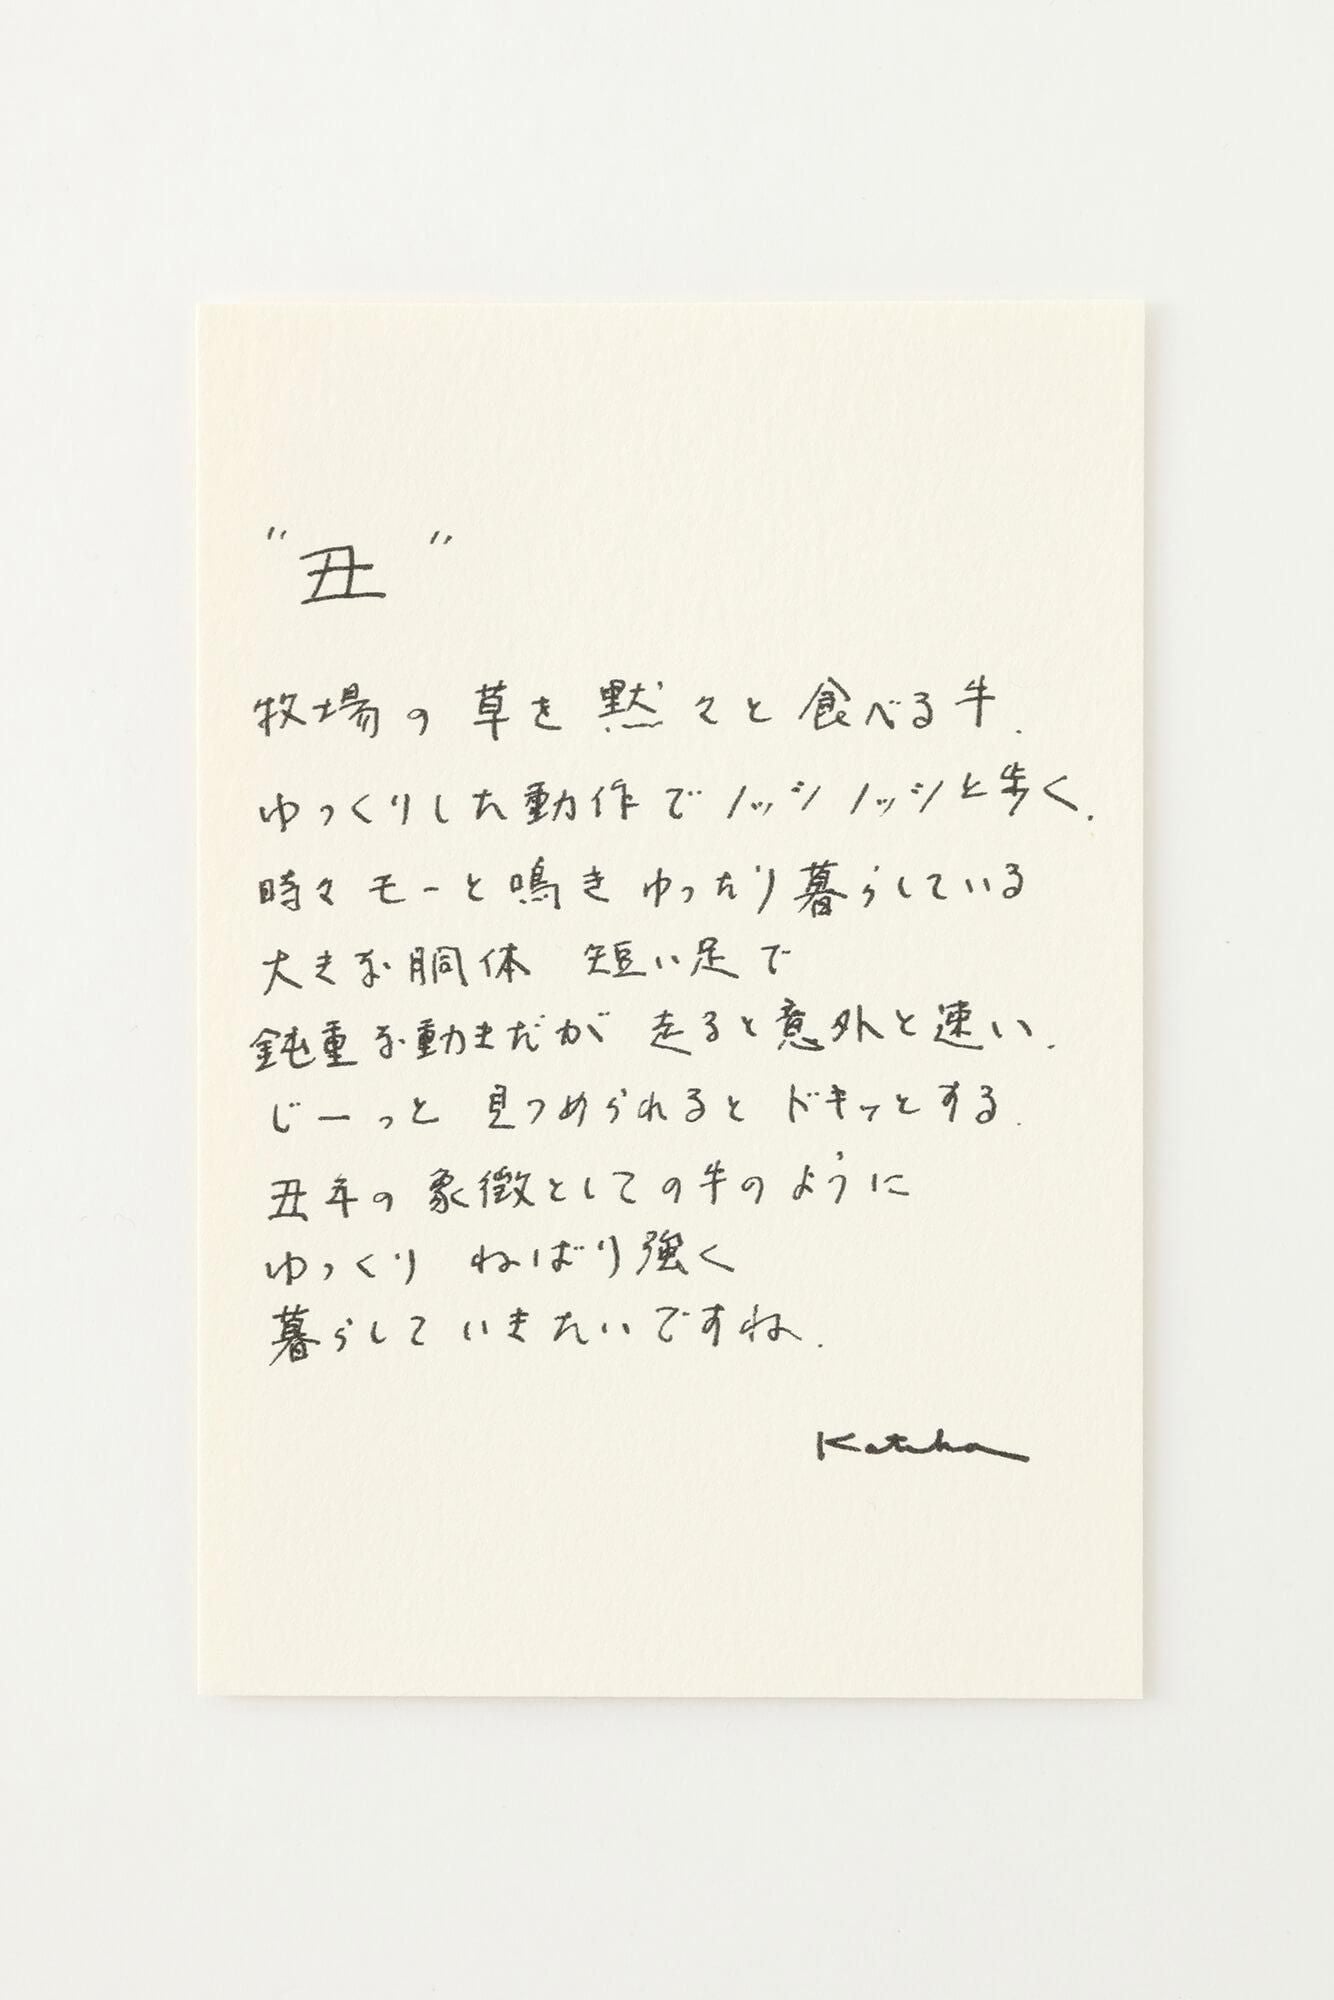 "丑"
牧場の草を黙々と食べる牛.
ゆっくりした動作でノッシノッシと歩く.
時々モーと鳴きゆったり暮らしている
大きな胴体 短い足で
鈍重な動きだが 走ると意外と速い.
じーっと 見つめられるとドキッとする.
丑年の象徴としての牛のように
ゆっくり ねばり強く
暮らしていきたいですね.